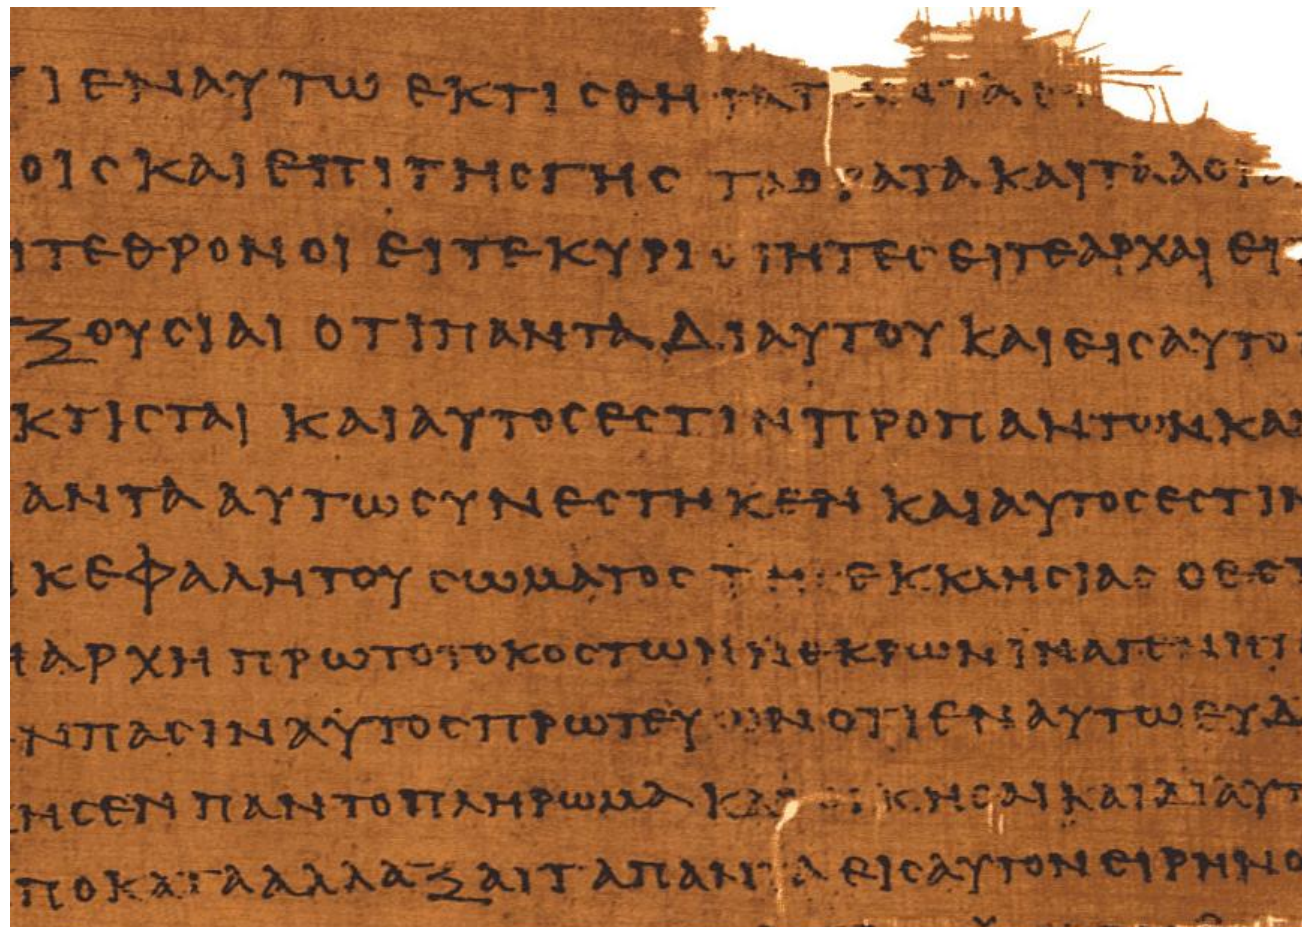 ΤΙ ΕΝ ΑΥΤΩ ΕΚΤΙСΘΗ ΤΑ ΠΑΝΤΑ
ΟΙС ΚΑΙ ΕΠΙ ΤΗС ΓΗС ΤΑ ΟΡΑΤΑ ΚΑΙ ΤΑ ΑΟΡΑ
ΙΤΕ ΘΡΟΝΟΙ ΕΙΤΕ ΚΥΡΙΟΤΗΤΕС ΕΙΤΕ ΑΡΧΑΙ ΕΙ
ΞΟΥСΙΑΙ ΟΤΙ ΠΑΝΤΑ ΔΙ ΑΥΤΟΥ ΚΑΙ ΕΙС ΑΥΤΟ
ΚΤΙСΤΑΙ ΚΑΙ ΑΥΤΟС ΕСΤΙΝ ΠΡΟ ΠΑΝΤΩΝ ΚΑΙ
ΑΝΤΑ ΑΥΤΩ СΥΝΕСΤΗΚΕΝ ΚΑΙ ΑΥΤΟС ΕСΤΙΝ
ΚΕΦΑΛΗ ΤΟΥ СΩΜΑΤΟС ΤΗС ΕΚΚΛΗСΙΑС Ο ΕСΤ
Η ΑΡΧΗ ΠΡΩΤΟΤΟΚΟС ΤΩΝ ΝΕΚΡΩΝ ΙΝΑ ΓΕΝΗΤ
ΝΠΑСΙΝ ΑΥΤΟС ΠΡΩΤΕΥΩΝ ΟΤΙ ΕΝ ΑΥΤΩ ΕΥΔ
ΗСΕΝ ΠΑΝ ΤΟ ΠΛΗΡΩΜΑ ΚΑΤΟΙΚΗСΑΙ ΚΑΙ ΔΙ ΑΥΤ
ΠΟΚΑΤΑΑΛΛΑΞΑΙ ΤΑ ΠΑΝΤΑ ΕΙС ΑΥΤΟΝ ΕΙΡΗΝΟ